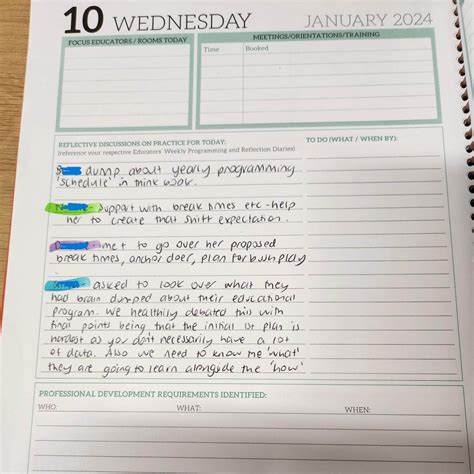 10 WEDNESDAY JANUARY 2024
FOCUS EDUCATORS / ROOMS TODAY
MEETINGS/ORIENTATIONS/TRAINING
Time Booked
REFLECTIVE DISCUSSIONS ON PRACTICE FOR TODAY:
(reference your respective Educators' Weekly Programming and Reflection Diaries)
TO DO (WHAT / WHEN BY):
dump about yearly programming
'schedule' in think book.
- support with break times etc - help
her to create that shift expectation.
met to go over her proposed
break times, anchor doer, plan for bush play
- asked to look over what they
had brain dumped about their educational
program. We healthily debated this with
final points being that the initial 1st plan is
hardest as you don't necessarily have a lot
of data. Also we need to know the 'what'
they are going to learn alongside the 'how'
PROFESSIONAL DEVELOPMENT REQUIREMENTS IDENTIFIED:
WHO: WHAT: WHEN: